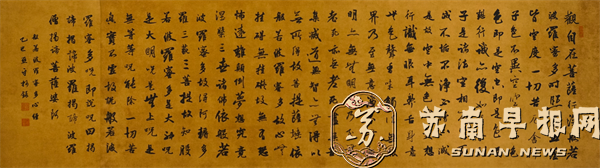 觀自在菩薩行深般若
波羅蜜多時照見五蘊
皆空度一切苦厄舍利
子色不異空空不異色
色即是空空即是色受
想行識亦復如是舍利
子是諸法空相不生
是故空中無色無受
想行識無眼耳鼻舌身意
無色聲香味
界乃至無意識界
明亦無無明盡乃至
老死亦無老死盡
集滅道無智亦無得以
無所得故菩提薩埵依
般若波羅蜜多故心無
罣礙無罣礙故無有恐
怖遠離顛倒夢想究竟
涅槃三世諸佛依般若
波羅蜜多故得阿耨多
羅三藐三菩提故知般
若波羅蜜多是大神咒
是大明咒是無上咒是
無等等咒能除一切苦
真實不虛故說般若波
羅蜜多咒即說咒曰揭
諦揭諦波羅揭諦波羅
僧揭諦菩提娑婆訶
般若波羅蜜多心經
苏
苏南早报网
SUNAN NEWS